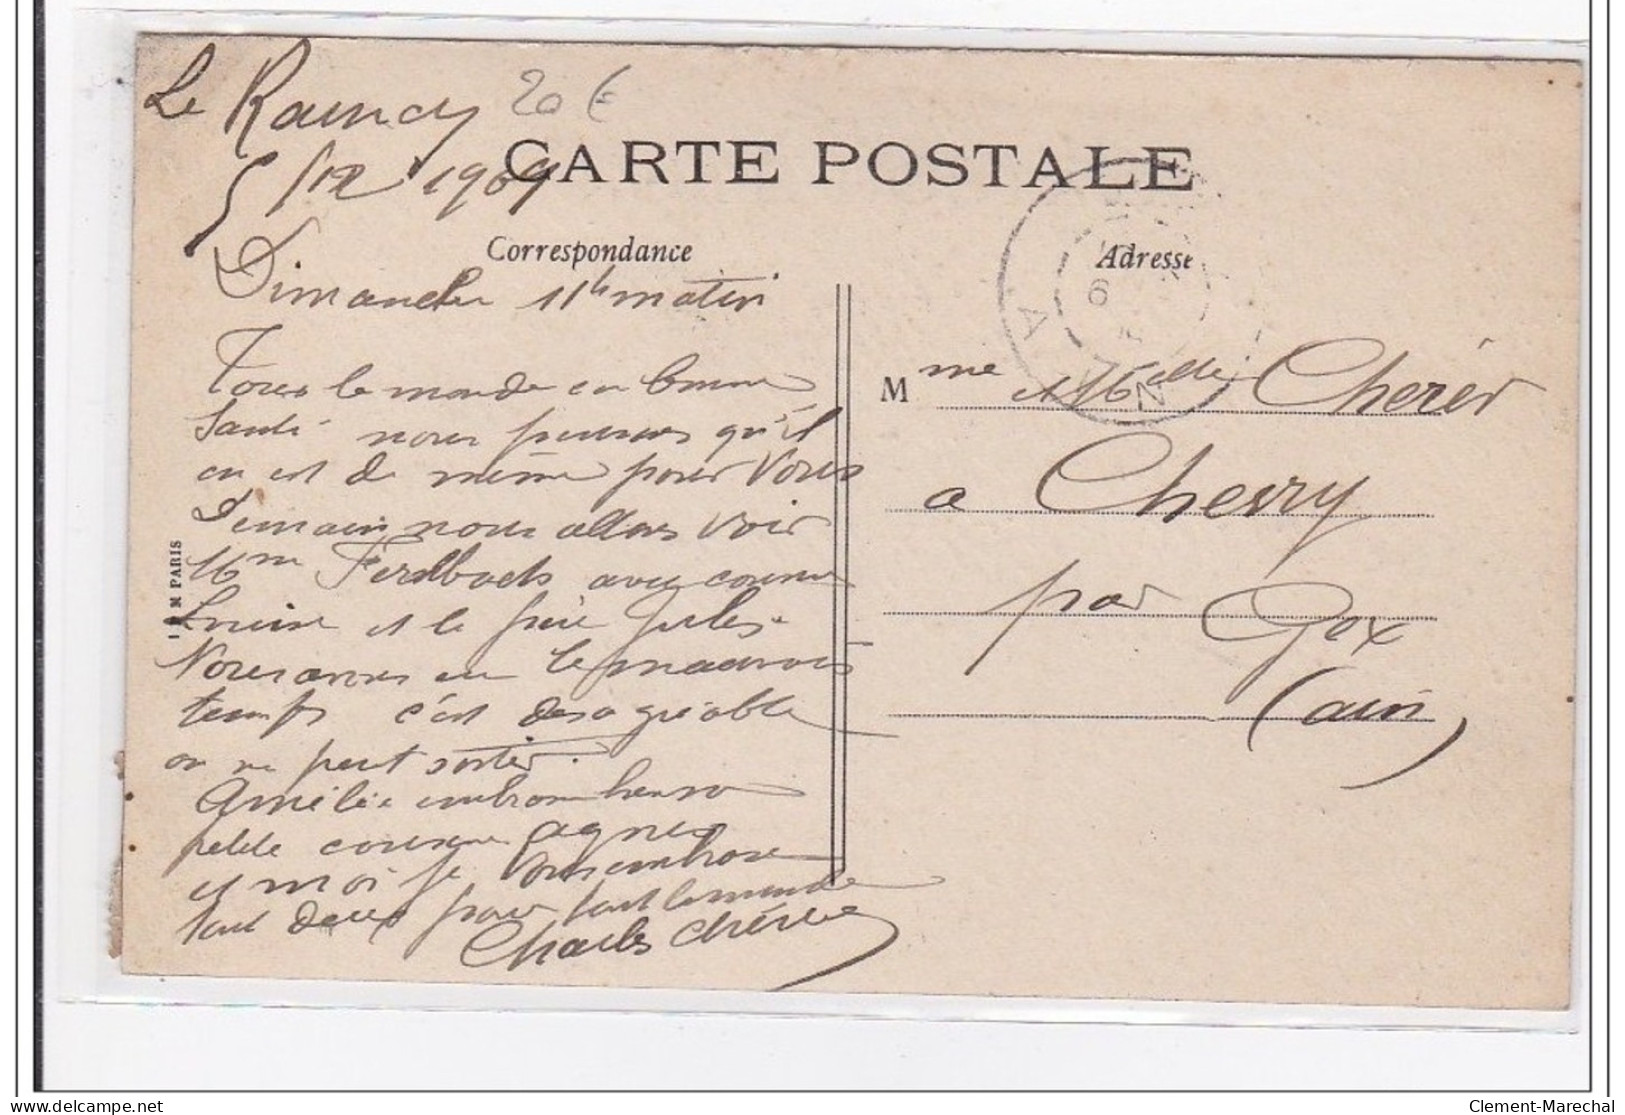 Le Raincy 20 €
5/12 1909
CARTE POSTALE
Correspondance
Adresse
Dimanche 11h matin
Tous le monde en bonne
Santé nous pensons qu'il
en est de même pour Vous
Demain nous allons voir
Mme Ferdbach avec cousine
Louise et le père Jules.
Nous avons eu le mauvais
temps c'est desagréable
on ne peut sortir.
Amélie embrasse
petite cousine agnes
et moi je vous embrasse
tout deux pour tout le monde
Charles Chérer
Mme Chérer
a Chevry
par Gex
(ain)
6
A N
PARIS
Clement-Marechal